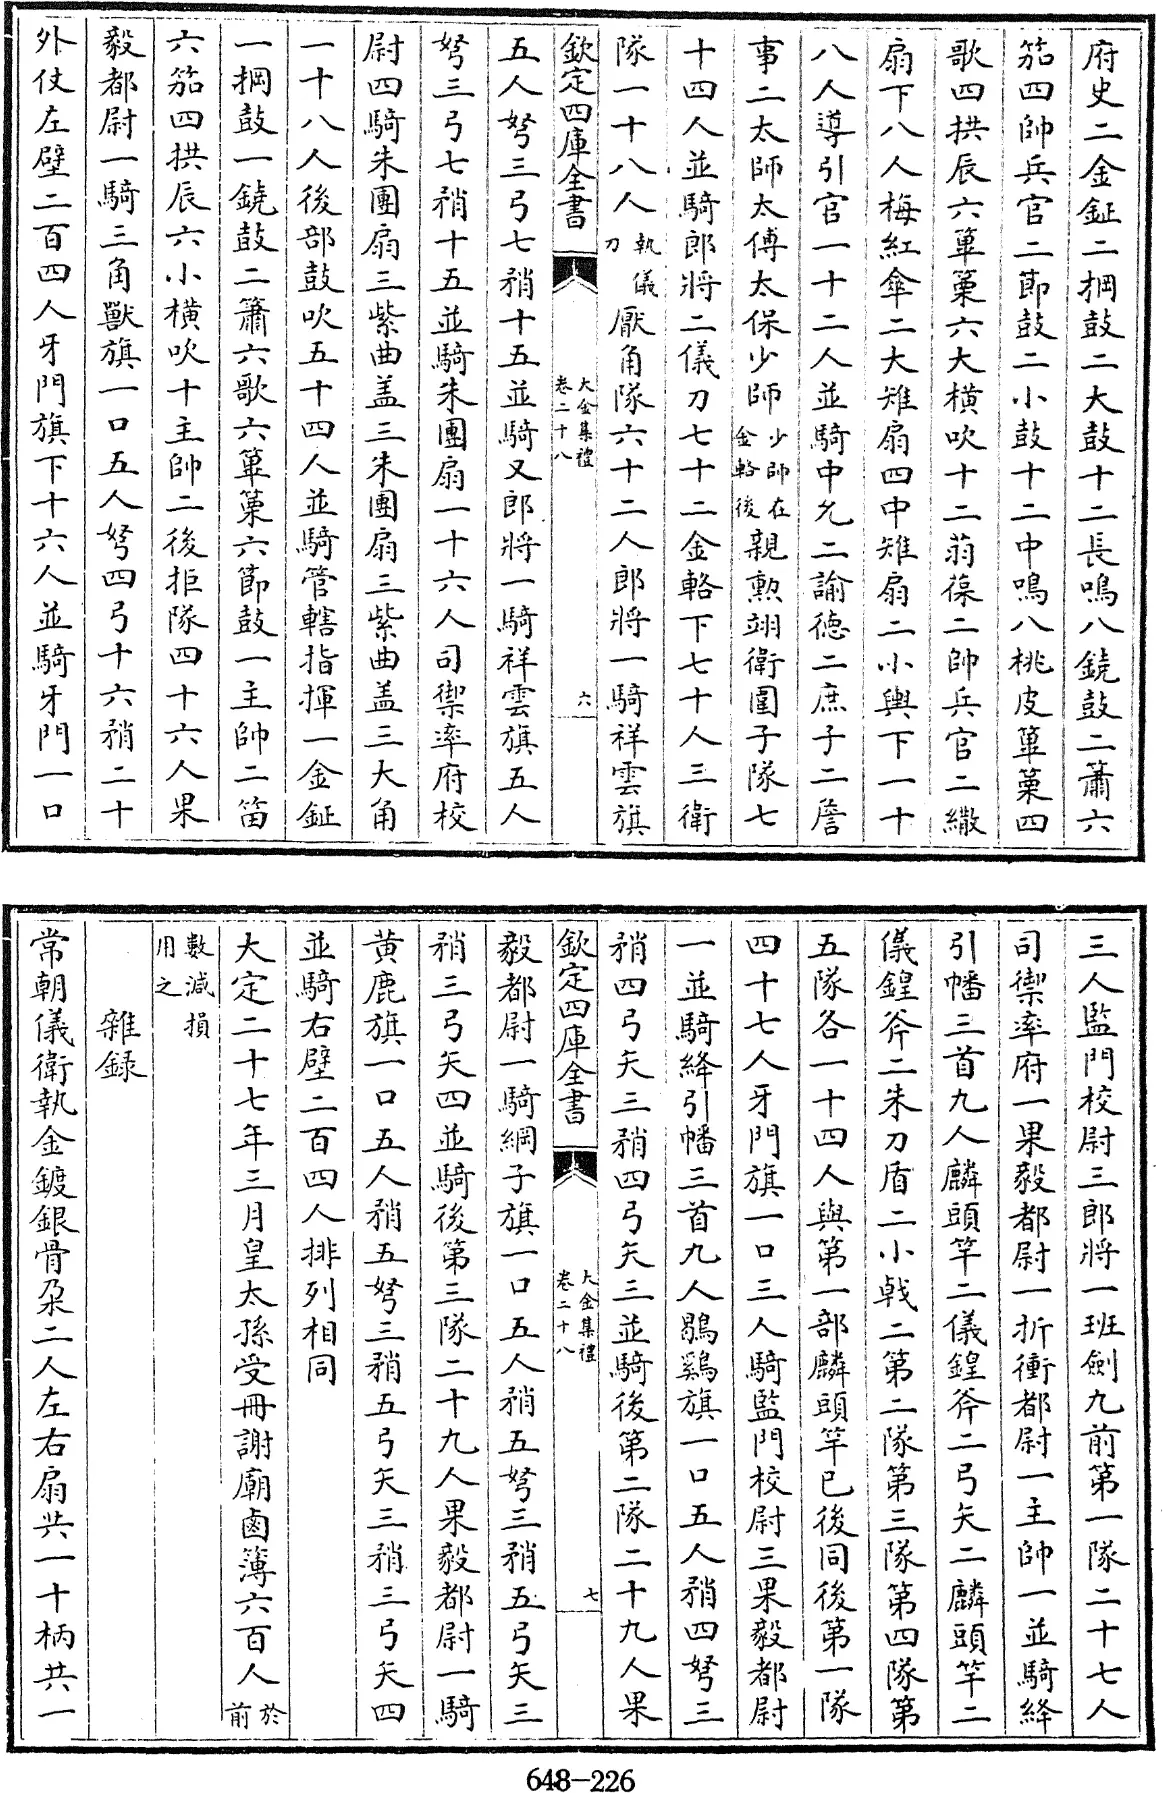 府史二金鉦二掆鼓二大鼓十二長鳴八鐃鼓二簫六
笳四帥兵官二節鼓二小鼓十二中鳴八桃皮篳篥四
歌四拱辰六篳篥六大橫吹十二蓊葆二帥兵官二繖
扇下八人梅紅傘二大雉扇四中雉扇二小輿下一十
八人導引官一十二人並騎中允二諭德二庶子二詹
事二太師太傅太保少師少師在金輅後親勲翊衛圍子隊七
十四人並騎郎將二儀刀七十二金輅下七十人三衛
隊一十八人執儀刀厭角隊六十二人郎將一騎祥雲旗
欽定四庫全書
大金集禮
卷二十八
六
五人弩三弓七矟十五並騎又郎將一騎祥雲旗五人
弩三弓七矟十五並騎朱團扇一十六人司禦率府校
尉四騎朱團扇三紫曲盖三朱團扇三紫曲盖三大角
一十八人後部鼓吹五十四人並騎管轄指揮一金鉦
一掆鼓一鐃鼓二簫六歌六篳篥六節鼓一主帥二笛
六笳四拱辰六小橫吹十主帥二後拒隊四十六人果
毅都尉一騎三角獸旗一口五人弩四弓十六矟二十
外仗左壁二百四人牙門旗下十六人並騎牙門一口
三人監門校尉三郎將一班劍九前第一隊二十七人
司禦率府一果毅都尉一折衝都尉一主帥一並騎絳
引幡三首九人麟頭竿二儀鍠斧二弓矢二麟頭竿二
儀鍠斧二朱刀盾二小戟二第二隊第三隊第四隊第
五隊各一十四人與第一部麟頭竿已後同後第一隊
四十七人牙門旗一口三人騎監門校尉三果毅都尉
一並騎絳引幡三首九人鶡鷄旗一口五人矟四弩三
矟四弓矢三矟四弓矢三並騎後第二隊二十九人果
欽定四庫全書
大金集禮
卷二十八
七
毅都尉一騎綱子旗一口五人矟五弩三矟五弓矢三
矟三弓矢四並騎後第三隊二十九人果毅都尉一騎
黄鹿旗一口五人矟五弩三矟五弓矢三矟三弓矢四
並騎右壁二百四人排列相同
大定二十七年三月皇太孫受冊謝廟鹵簿六百人於前
數減損用之
雜録
常朝儀衛執金鍍銀骨朶二人左右扇共一十柄共一
648-226